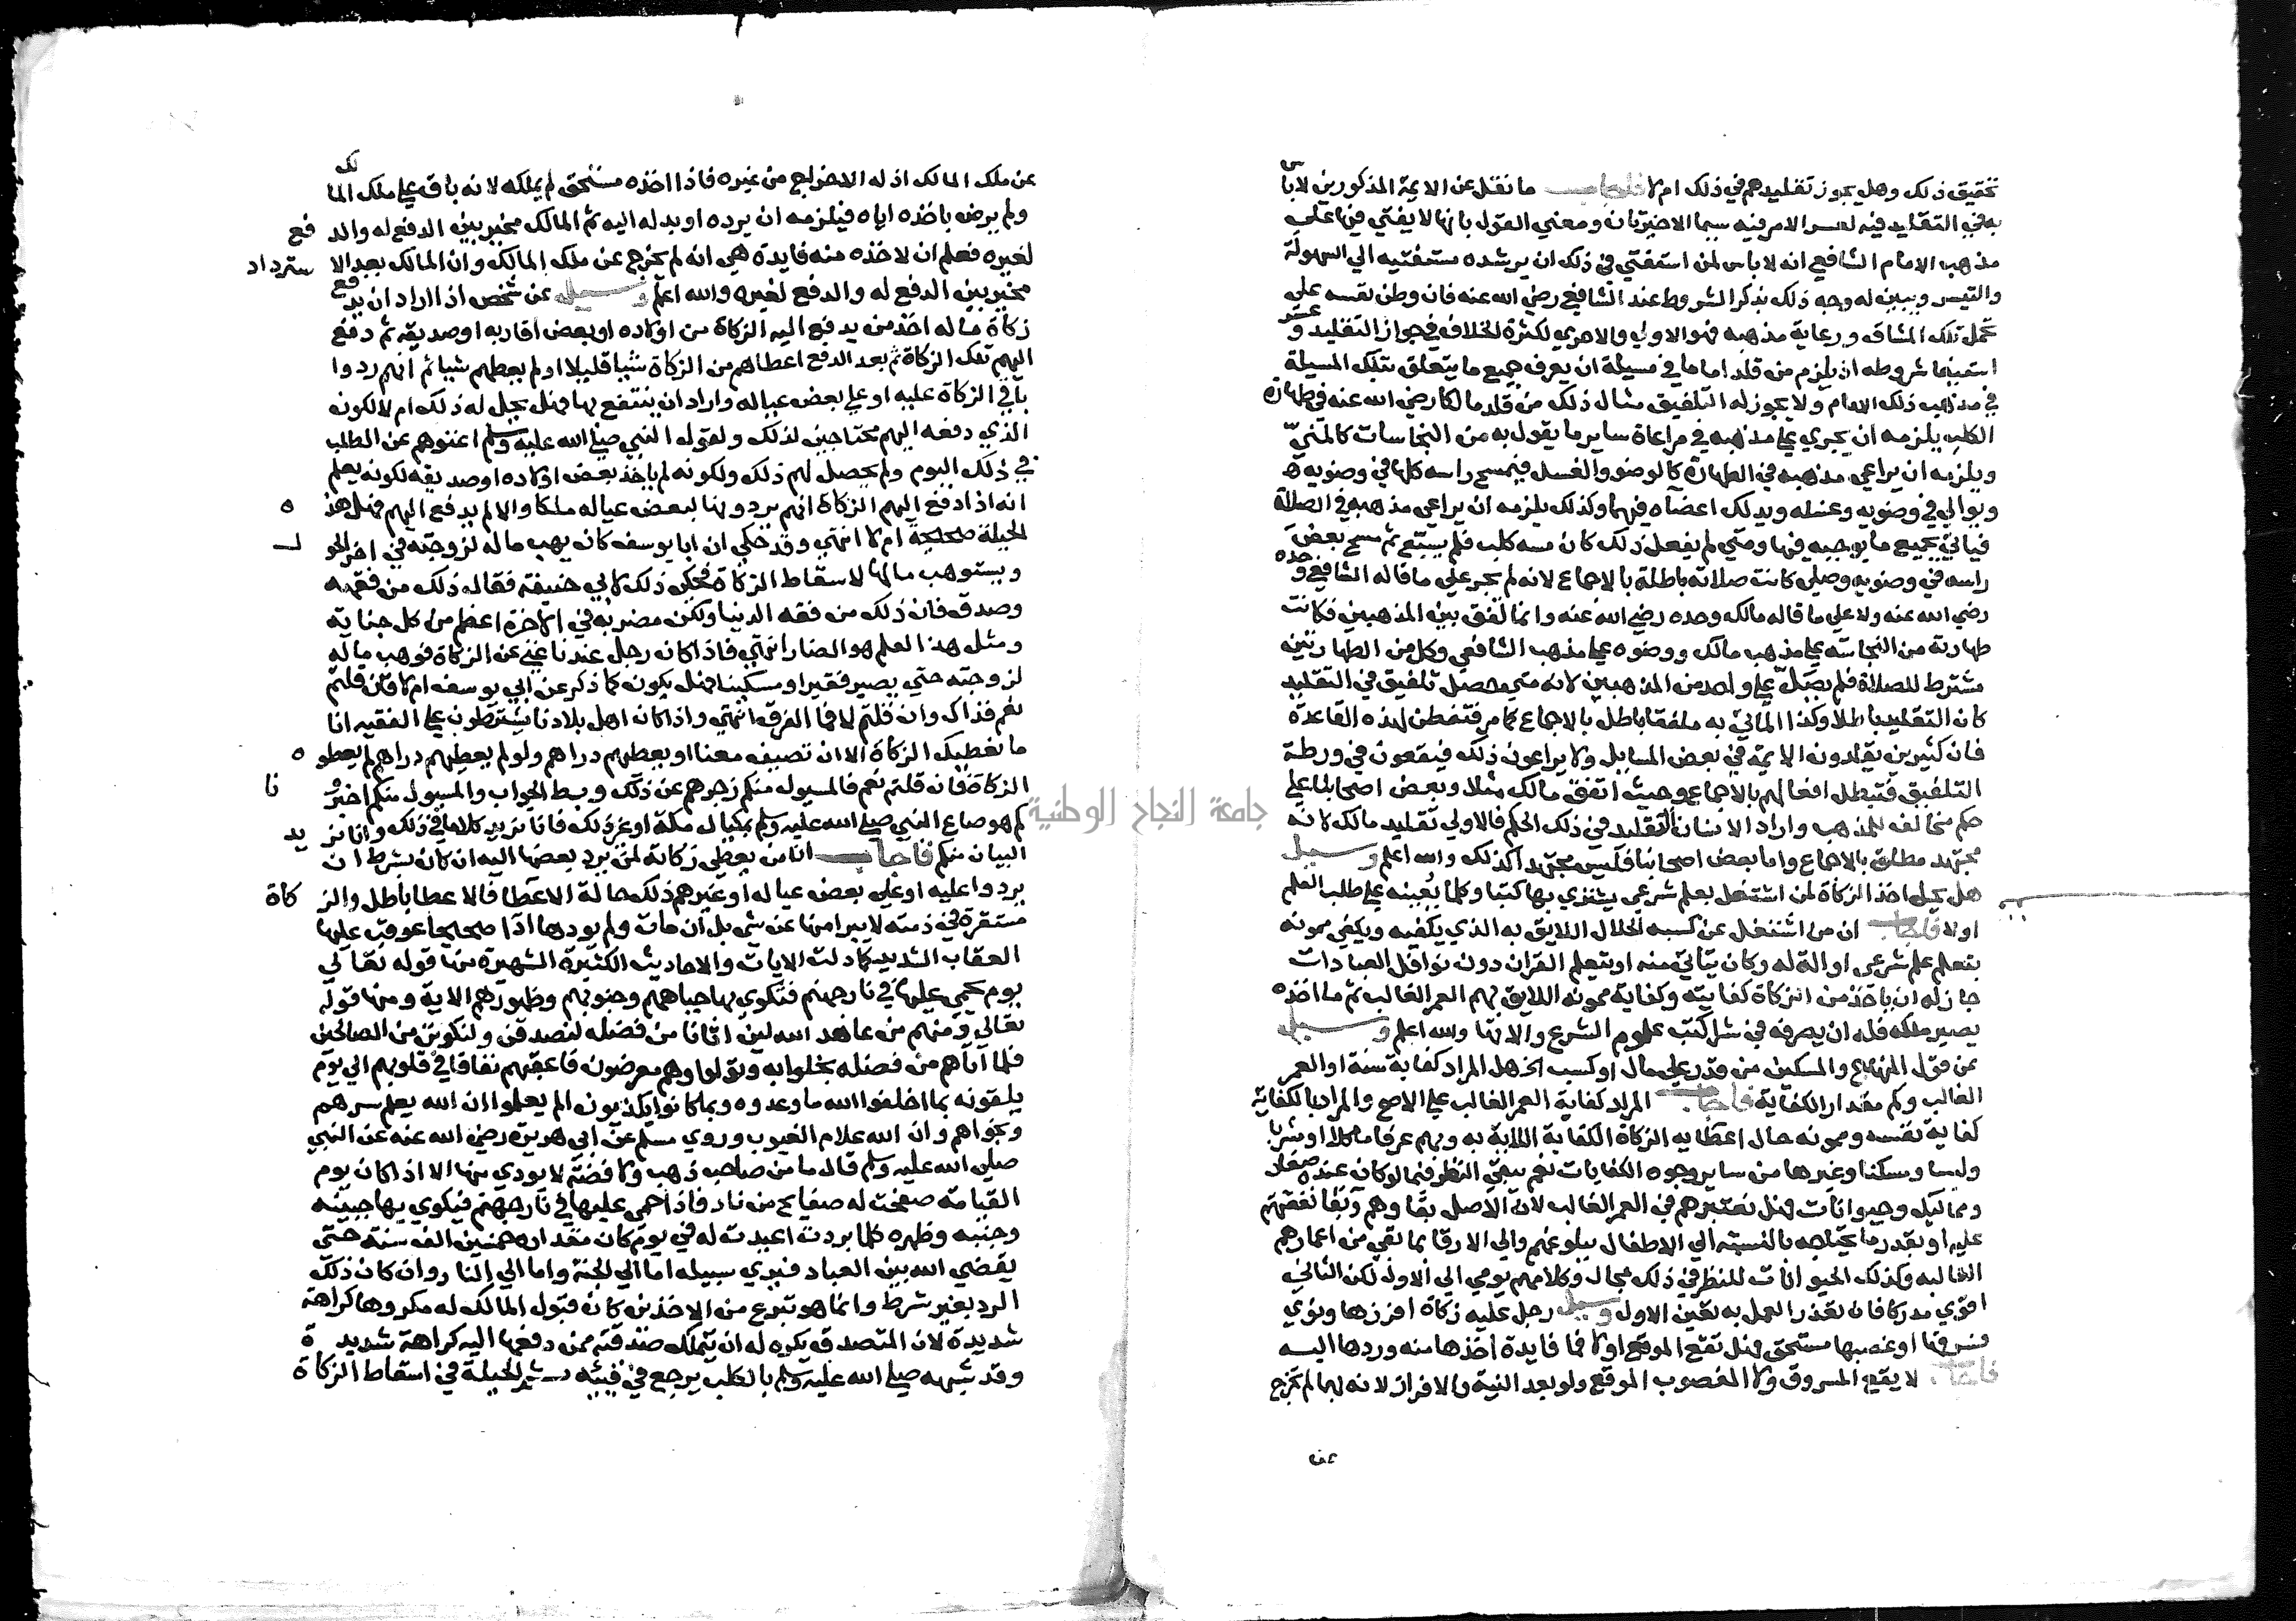 تحقيق ذلك وهل يجوز تقليدهم في ذلك ام لا فاجاب ما نقل عن الايمة المذكورين لا باس
به في التقليد فيه لعسر الامر فيه سيما الاخيرتان ومعني القول بانها لا يفتي فيها علي
مذهب الامام الشافعي انه لا باس لمن استفتي في ذلك ان يرشده مستفتيه الي السهولة
والتيسر ويبين له وجه ذلك بذكر الشروط عند الشافعي رضي الله عنه فان وطن نفسه علي
تحمل تلك المشاق ورعاية مذهبه فهو الاولي والاحري لكثرة الخلاف في جواز التقليد وعسر
استيفا شروطه اذ يلزم من قلد اماما في مسيلة ان يعرف جميع ما يتعلق بتلك المسيلة
في مذهب ذلك الامام ولا يجوز له التلفيق مثال ذلك من قلد مالكا رضي الله عنه في طهارة
الكلب يلزمه ان يجري علي مذهبه في مراعاة ساير ما يقول به من النجاسات كالمني
ويلزمه ان يراعي مذهبه في الطهارة كالوضو والغسل فيمسح راسه كلها في وضويه
ويوالي في وضويه وغسله ويدلك اعضاه فيهما وكذلك يلزمه ان يراعي مذهبه في الصلاة
فياتي بجميع ما يوجبه فيها ومتي لم يفعل ذلك كان مسه كلب فلم يسبع ثم مسح بعض
راسه في وضويه وصلي كانت صلاته باطلة بالاجماع لانه لم يجر علي ما قاله الشافعي وحده
رضي الله عنه ولا علي ما قاله مالك وحده رضي الله عنه وانما لفق بين المذهبين فكانت
طهارته من النجاسة علي مذهب مالك ووضوه علي مذهب الشافعي وكل من الطهارتين
مشترط للصلاة فلم يصل علي واحد من المذهبين لانه متي حصل تلفيق في التقليد
كان التقليد باطلا وكذا الماتي به ملفقا باطل بالاجماع كما مر فتفطن لهذه القاعدة
فان كثيرين يقلدون الايمة في بعض المسايل ولا يراعون ذلك فيقعون في ورطة
التلفيق فتبطل افعالهم بالاجماع وحيث اتفق مالك مثلا وبعض اصحابنا علي
حكم مخالف للمذهب واراد الانسان التقليد في ذلك الحكم فالاولي تقليد مالك لانه
مجتهد مطلق بالاجماع واما بعض اصحابنا فليس مجتهدا كذلك والله اعلم وسيل
هل يحل اخذ الزكاة لمن اشتغل بعلم شرعي يشتري بها كتبا وكلما يعينه علي طلب العلم
اولا فاجاب ان من اشتغل عن كسبه الحلال اللايق به الذي يكفيه ويكفي ممونه
بتعلم علم شرعي او الة له وكان يتاتي منه او بتعلم القران دون نوافل العبادات
جاز له ان ياخذ من الزكاة كفايته وكفاية ممونه اللايق بهم العمر الغالب ثم ما اخذه
يصير ملكه فله ان يصرفه في شرا كتب علوم الشرع والاتها والله اعلم وسيل
عن قول المنهاج والمسكين من قدر علي مال او كسب الخ هل المراد كفاية سنة او العمر
الغالب وكم مقدار الكفاية فاجاب المراد كفاية العمر الغالب علي الاصح والمراد بالكفاية
كفاية نفسه وممونه حال اعطايه الزكاة الكفاية اللايقة به وبهم عرفا ماكلا ومشربا
وملبسا ومسكنا وغيرها من ساير وجوه الكفايات نعم يبقي النظر فيما لو كان عنده صغار
ومماليك وحيوانات فهل نعتبرهم في العمر الغالب لان الاصل بقاوهم وبقا نفقتهم
عليه او بقدر ما يحتاجه بالنسبة الي الاطفال ببلوغهم والي الارقا بما بقي من اعمارهم
الغالبه وكذلك الحيوانات للنظر في ذلك مجال وكلامهم يومي الي الاول لكن الثاني
اقوي مدركا فان تعذر العمل به تعين الاول وسيل رجل عليه زكاة افرزها ونوي
فسرقها او غصبها مستحق فهل تقع الموقع اولا فما فايدة اخذها منه وردها اليه
فاجاب لا يقع المسروق ولا المغصوب الموقع ولو بعد النية والافراز لانه لهما لم تخرج
عن
عن ملك المالك اذ له الاخراج من غيره فاذا اخذه مستحق لم يملكه لانه باق علي ملك المالك
ولم يرض باخذه اياه فيلزمه ان يرده او بدله اليه ثم المالك مخير بين الدفع له والدفع
لغيره فعلم ان لاخذه منه فايدة هي انه لم يخرج عن ملك المالك وان المالك بعد الاسترداد
مخير بين الدفع له والدفع لغيره والله اعلم وسيل عن شخص اذا اراد ان يدفع
زكاة ماله اخذ من يدفع اليه الزكاة من اولاده او بعض اقاربه او صديقه ثم دفع
اليهم تلك الزكاة ثم بعد الدفع اعطاهم من الزكاة شيا قليلا او لم يعطهم شيا ثم انهم ردوا
باقي الزكاة عليه او علي بعض عياله واراد ان ينتفع بها فهل يحل له ذلك ام لا لكونه
الذي دفعه اليهم محتاجين لذلك ولقوله النبي صلي الله عليه وسلم اغنوهم عن الطلب
في ذلك اليوم ولم يحصل لهم ذلك ولكونه لم ياخذ بعض اولاده او صديقه لكونه يعلم
انه اذا دفع اليهم الزكاة انهم يردونها لبعض عياله ملكا والا لم يدفع اليهم فهل هذه
الحيلة صحيحة ام لا انتهي وقد حكي ان ابا يوسف كان يهب ماله لزوجته في اخر الحول
ويستوهب مالها لاسقاط الزكاة فحكي ذلك لابي حنيفة فقال ذلك من فقهه
وصدق فان ذلك من فقه الدنيا ولكن مضرته في الاخرة اعظم من كل جناية
ومثل هذا العلم هو الضار انتهي فاذا كان رجل عندنا غني عن الزكاة فوهب ماله
لزوجته حتي يصير فقيرا او مسكينا فهل يكون كما ذكر عن ابي يوسف ام لا فان قلتم
نعم فذاك وان قلتم لا فما الفرق انتهي واذا كان اهل بلادنا يشترطون علي الفقير انا
ما نعطيك الزكاة الا ان تضيف معنا او يعطيهم دراهم ولو لم يعطهم دراهم لم يعطوه
الزكاة فان قلتم نعم فالمسيول منكم زجرهم عن ذلك وبسط الجواب والمسيول منكم اخبرونا
كم هو صاع النبي صلي الله عليه وسلم بمكيال مكة او غير ذلك فانا نريد كلاما في ذلك وانا نريد
البيان منكم فاجاب انا من يعطي زكاته لمن يرد بعضها اليه ان كان بشرط ان
يردوا عليه او علي بعض عياله او غيرهم ذلك حالة الاعطا فالاعطا باطل والزكاة
مستقرة في ذمته لا يبرا منها عن شي بل ان مات ولم يودها ادا صحيحا عوقب عليها
العقاب الشديد كما دلت الايات والاحاديث الكثيرة الشهيرة منها قوله تعالي
يوم يحمي عليها في نار جهنم فتكوي بها جباههم وجنوبهم وظهورهم الاية ومنها قوله
تعالي ومنهم من عاهد الله لين اتانا من فضله لنصدقن ولنكونن من الصالحين
فلما آتاهم من فضله بخلوا به وتولوا وهم معرضون فاعقبهم نفاقا في قلوبهم الي يوم
يلقونه بما اخلفوا الله ما وعدوه وبما كانوا يكذبون الم يعلموا ان الله يعلم سرهم
ونجواهم وان الله علام الغيوب وروي مسلم عن ابي هريرة رضي الله عنه عن النبي
صلي الله عليه وسلم قال ما من صاحب ذهب ولا فضة لا يودي منها الا اذا كان يوم
القيامة صفحت له صفايح من نار فاذا احمي عليها في نار جهنم فيكوي بها جبينه
وجنبه وظهره كلما بردت اعيدت له في يوم كان مقداره خمسين الف سنة حتي
يقضي الله بين العباد فيري سبيله اما الي الجنة واما الي النار وان كان ذلك
الرد بغير شرط وانما هو تبرع من الاخذين كان قبول المالك له مكروها كراهة
شديدة لان المتصدق يكره له ان يتملك صدقته ممن دفعها اليه كراهة شديدة
وقد شبهه صلي الله عليه وسلم بالكلب يرجع في قيئه ثم الحيلة في اسقاط الزكاة
جامعة النجاح الوطنية